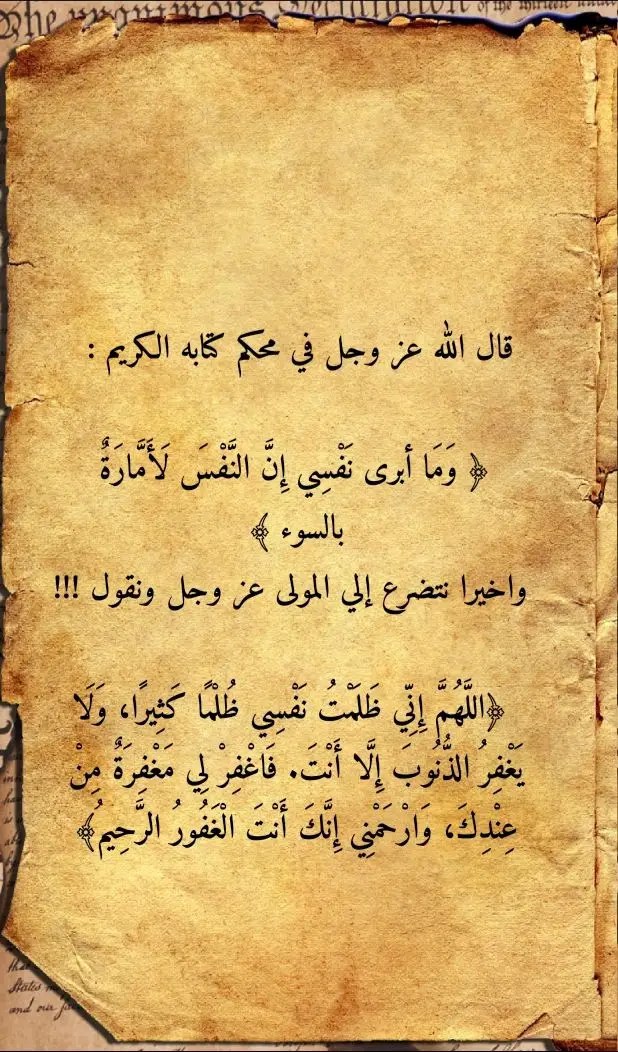 The unanimous Declaration of the thirteen united
قال الله عز وجل في محكم كتابه الكريم :
﴿ وَمَا أبرى نَفْسِي إِنَّ النَّفْسَ لَأَمَّارَةٌ
بالسوء ﴾
واخيرا نتضرع إلي المولى عز وجل ونقول !!!
﴿اللَّهُمَّ إِنِّي ظَلَمْتُ نَفْسِي ظُلْمًا كَثِيرًا، وَلَا
يَغْفِرُ الذُّنُوبَ إِلَّا أَنْتَ. فَاغْفِرْ لِي مَغْفِرَةً مِنْ
عِنْدِكَ، وَارْحَمْنِي إِنَّكَ أَنْتَ الْغَفُورُ الرَّحِيمُ﴾
States
and our